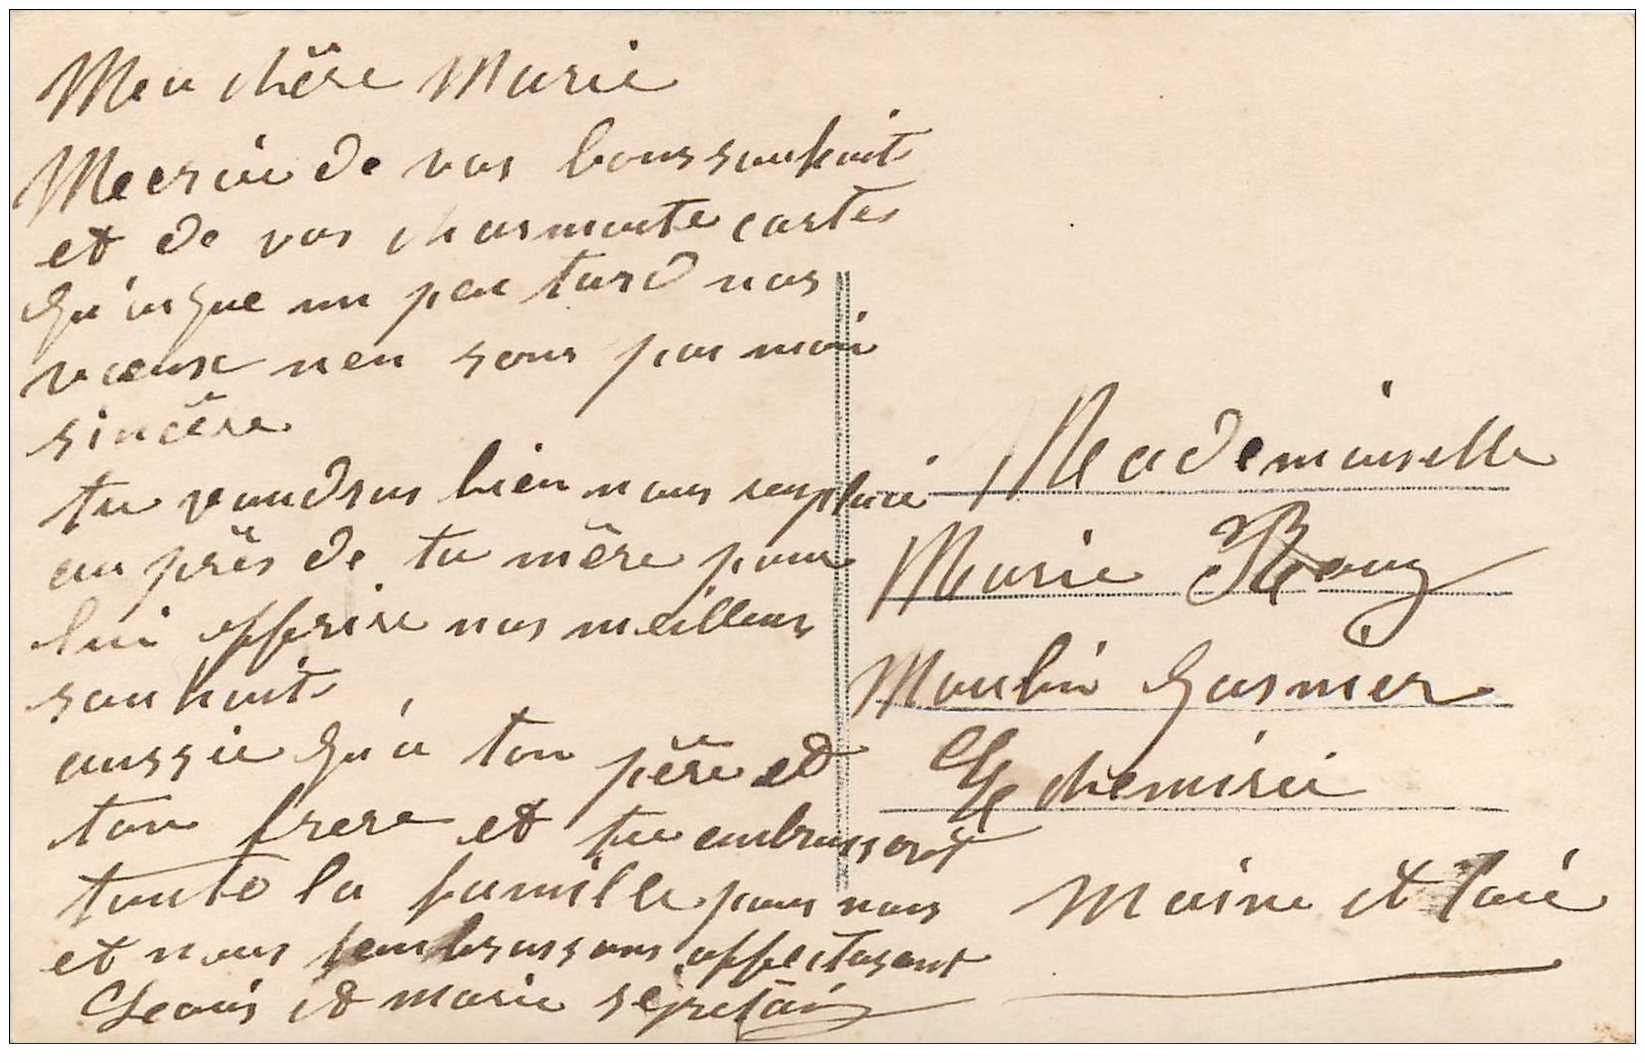 Ma chère Marie
Mercie de vos bons souhait
et de vos charmante cartes
qu'oique un peu tard nos
voeux nen sons pas moin
sincère
tu voudras bien nous remplacé
au près de ta mère pour
lui offrire nos meilleurs
souhait
aussie qu'a ton père et
ton frere et tu embrasserat
toute la famille pour nous
et nous
Louis et marie secretain
Mademoiselle
Marie
Moulin Gasnier
Chemiré
Maine et Loire